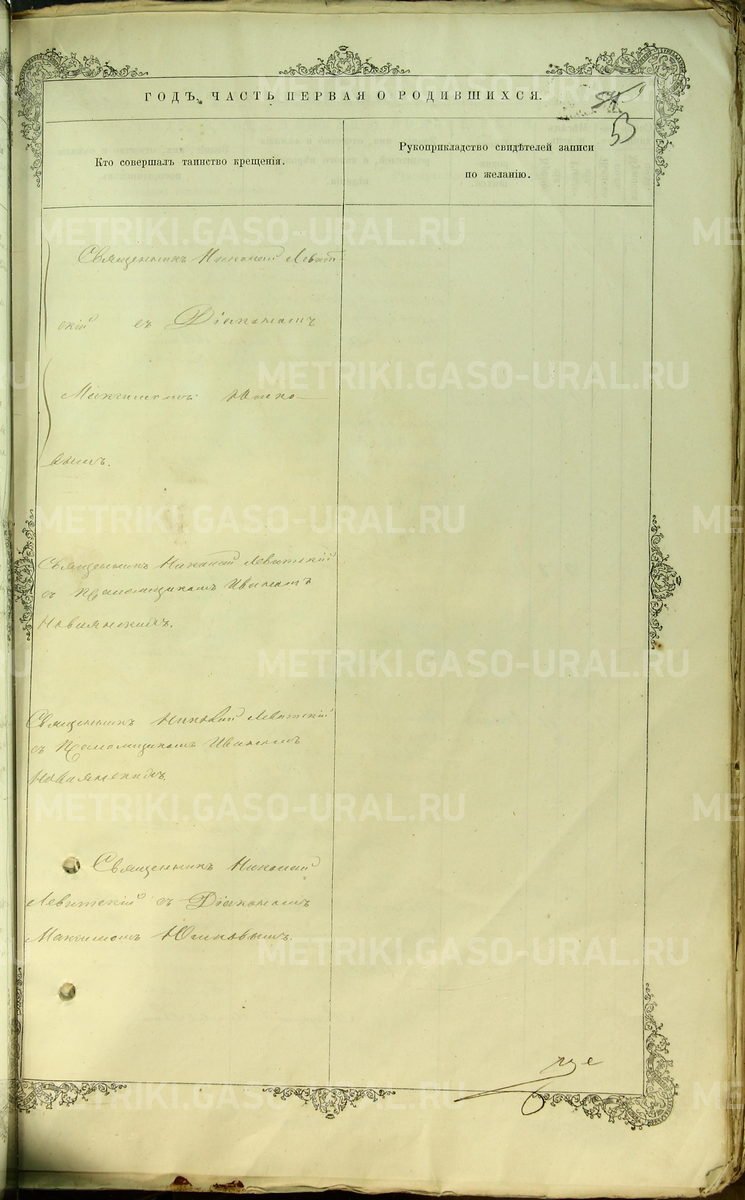 ГОДЪ, ЧАСТЬ ПЕРВАЯ О РОДИВШИХСЯ.
53
Кто совершалъ таинство крещенія.
Рукоприкладство свидѣтелей записи
по желанію.
Священникъ Николай Левит-
скій съ Діакономъ
Максимомъ
Священникъ Николай Левитскій
съ Псаломщикомъ Иваномъ
Священникъ Николай Левитскій
съ Псаломщикомъ Иваномъ
Священникъ Николай
Левитскій съ Діакономъ
Максимомъ
METRIKI.GASO-URAL.RU